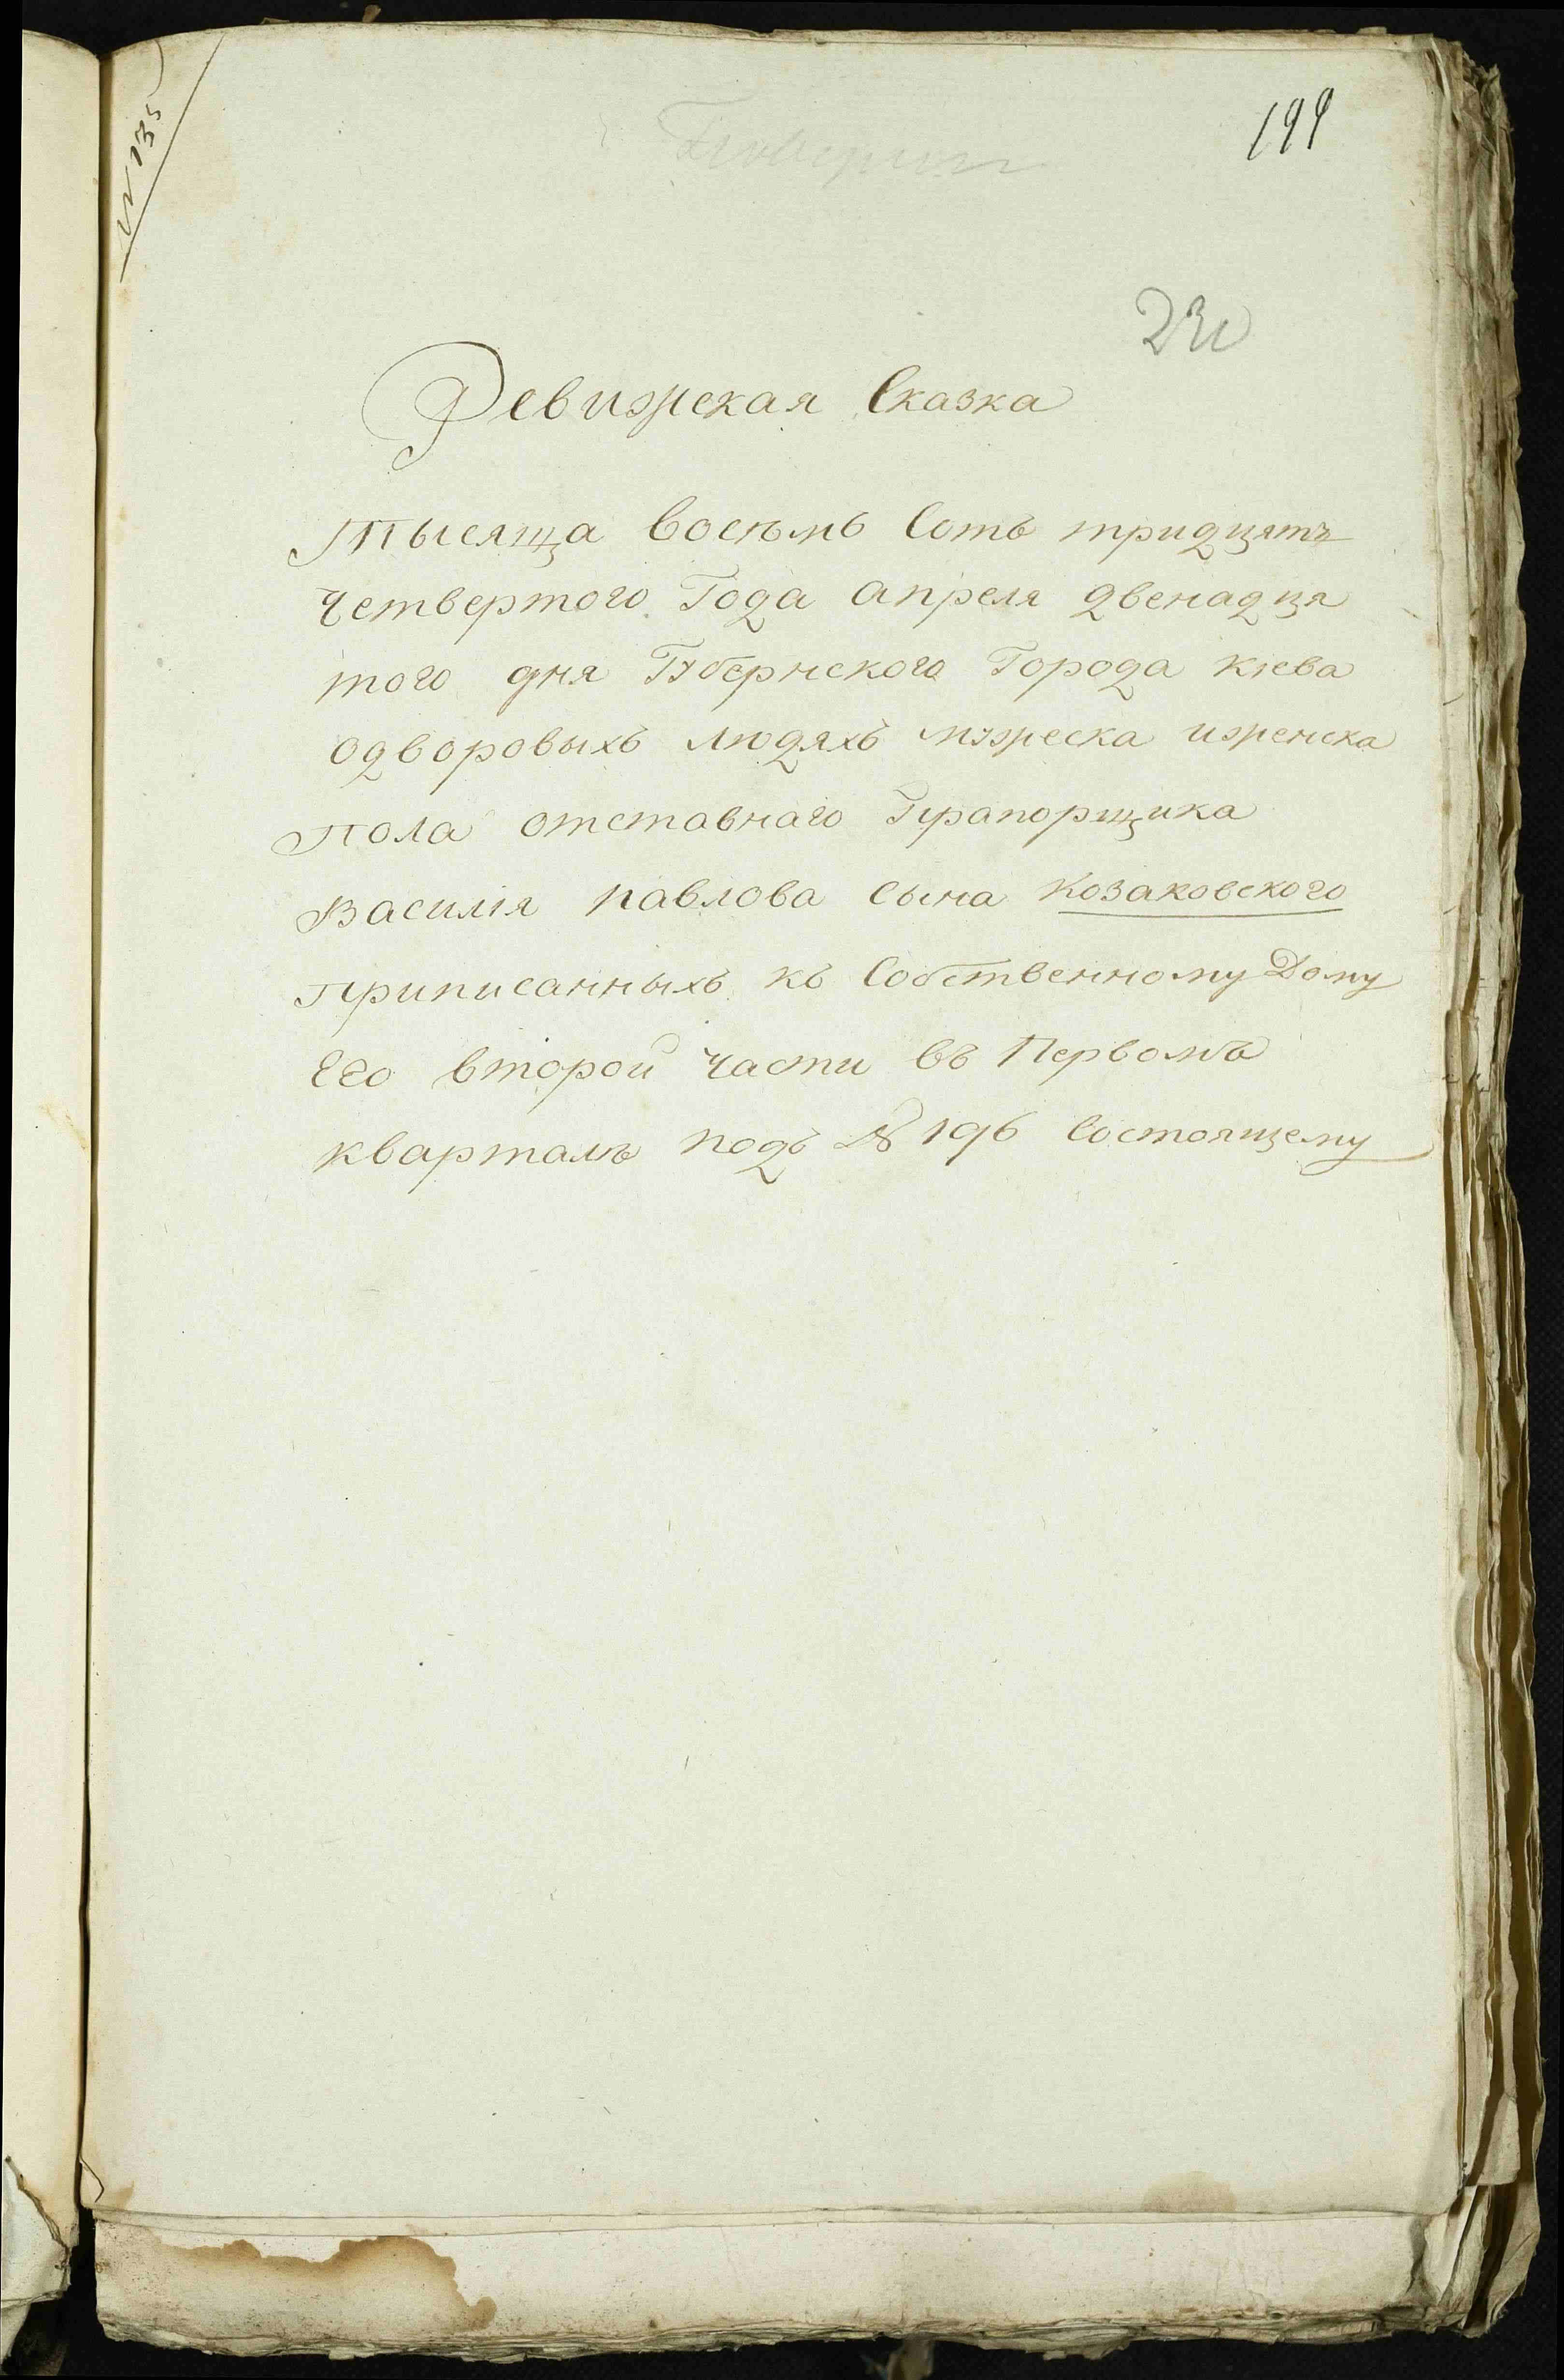 № 135
199
230
Ревижская Сказка
Тысяща восѣмь сотъ тридцятъ
четвертого Года апреля двенадця
того дня Губернского Города Кіева
одворовыхъ людяхъ мужеска иженска
пола отставнаго Прапорщика
Василія павлова сына Козаковского
приписанныхъ къ Собственному Дому
Его второй части въ Первомъ
кварталѣ подъ № 196 состоящему